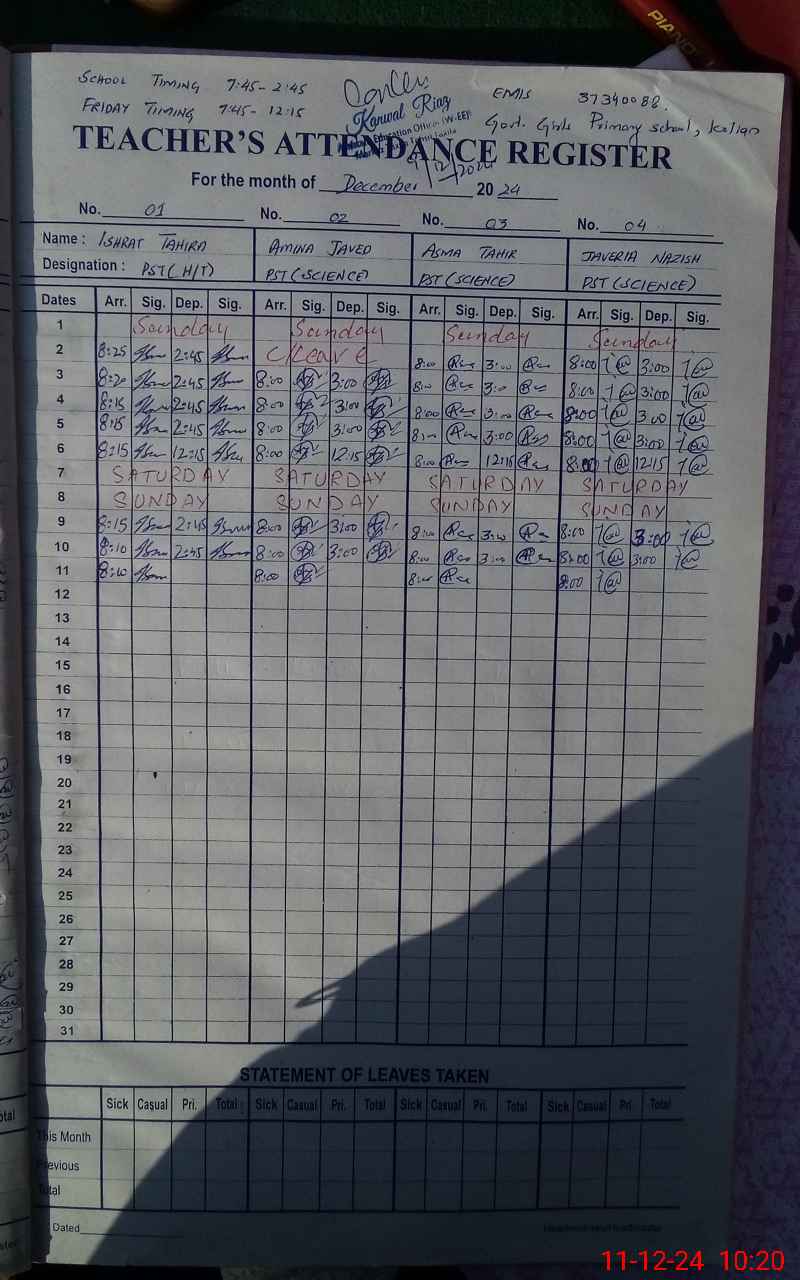 PIANO
SCHOOL TIMING 7:45 - 2:45
EMIS 37340088.
FRIDAY TIMING 7:45 - 12:15
Kanwal Riaz
Govt. Girls Primary school,
Education Officer (W-EE)
TEACHER'S ATTENDANCE REGISTER
For the month of December 2024
No. 01 No. 02 No. 03 No. 04
Name : ISHRAT TAHIRA AMINA JAVED ASMA TAHIR JAVERIA NAZISH
Designation : PST(H/T) PST(SCIENCE) PST(SCIENCE) PST(SCIENCE)
Dates Arr. Sig. Dep. Sig. Arr. Sig. Dep. Sig. Arr. Sig. Dep. Sig. Arr. Sig. Dep. Sig.
1 Sunday Sunday Sunday Sunday
2 8:25 2:45 C/Leave 8:00 3:00 8:00 3:00
3 8:20 2:45 8:00 3:00 8:00 3:00 8:00 3:00
4 8:15 2:45 8:00 3:00 8:00 3:00 8:00 3:00
5 8:15 2:45 8:00 3:00 8:00 3:00 8:00 3:00
6 8:15 12:15 8:00 12:15 8:00 12:15 8:00 12:15
7 SATURDAY SATURDAY SATURDAY SATURDAY
8 SUNDAY SUNDAY SUNDAY SUNDAY
9 8:15 2:45 8:00 3:00 8:00 3:00 8:00 3:00
10 8:10 2:45 8:00 3:00 8:00 3:00 8:00 3:00
11 8:10 8:00 8:00 8:00
12
13
14
15
16
17
18
19
20
21
22
23
24
25
26
27
28
29
30
31
STATEMENT OF LEAVES TAKEN
Sick Casual Pri. Total Sick Casual Pri. Total Sick Casual Pri. Total Sick Casual Pri. Total
This Month
Previous
Total
Dated
11-12-24 10:20